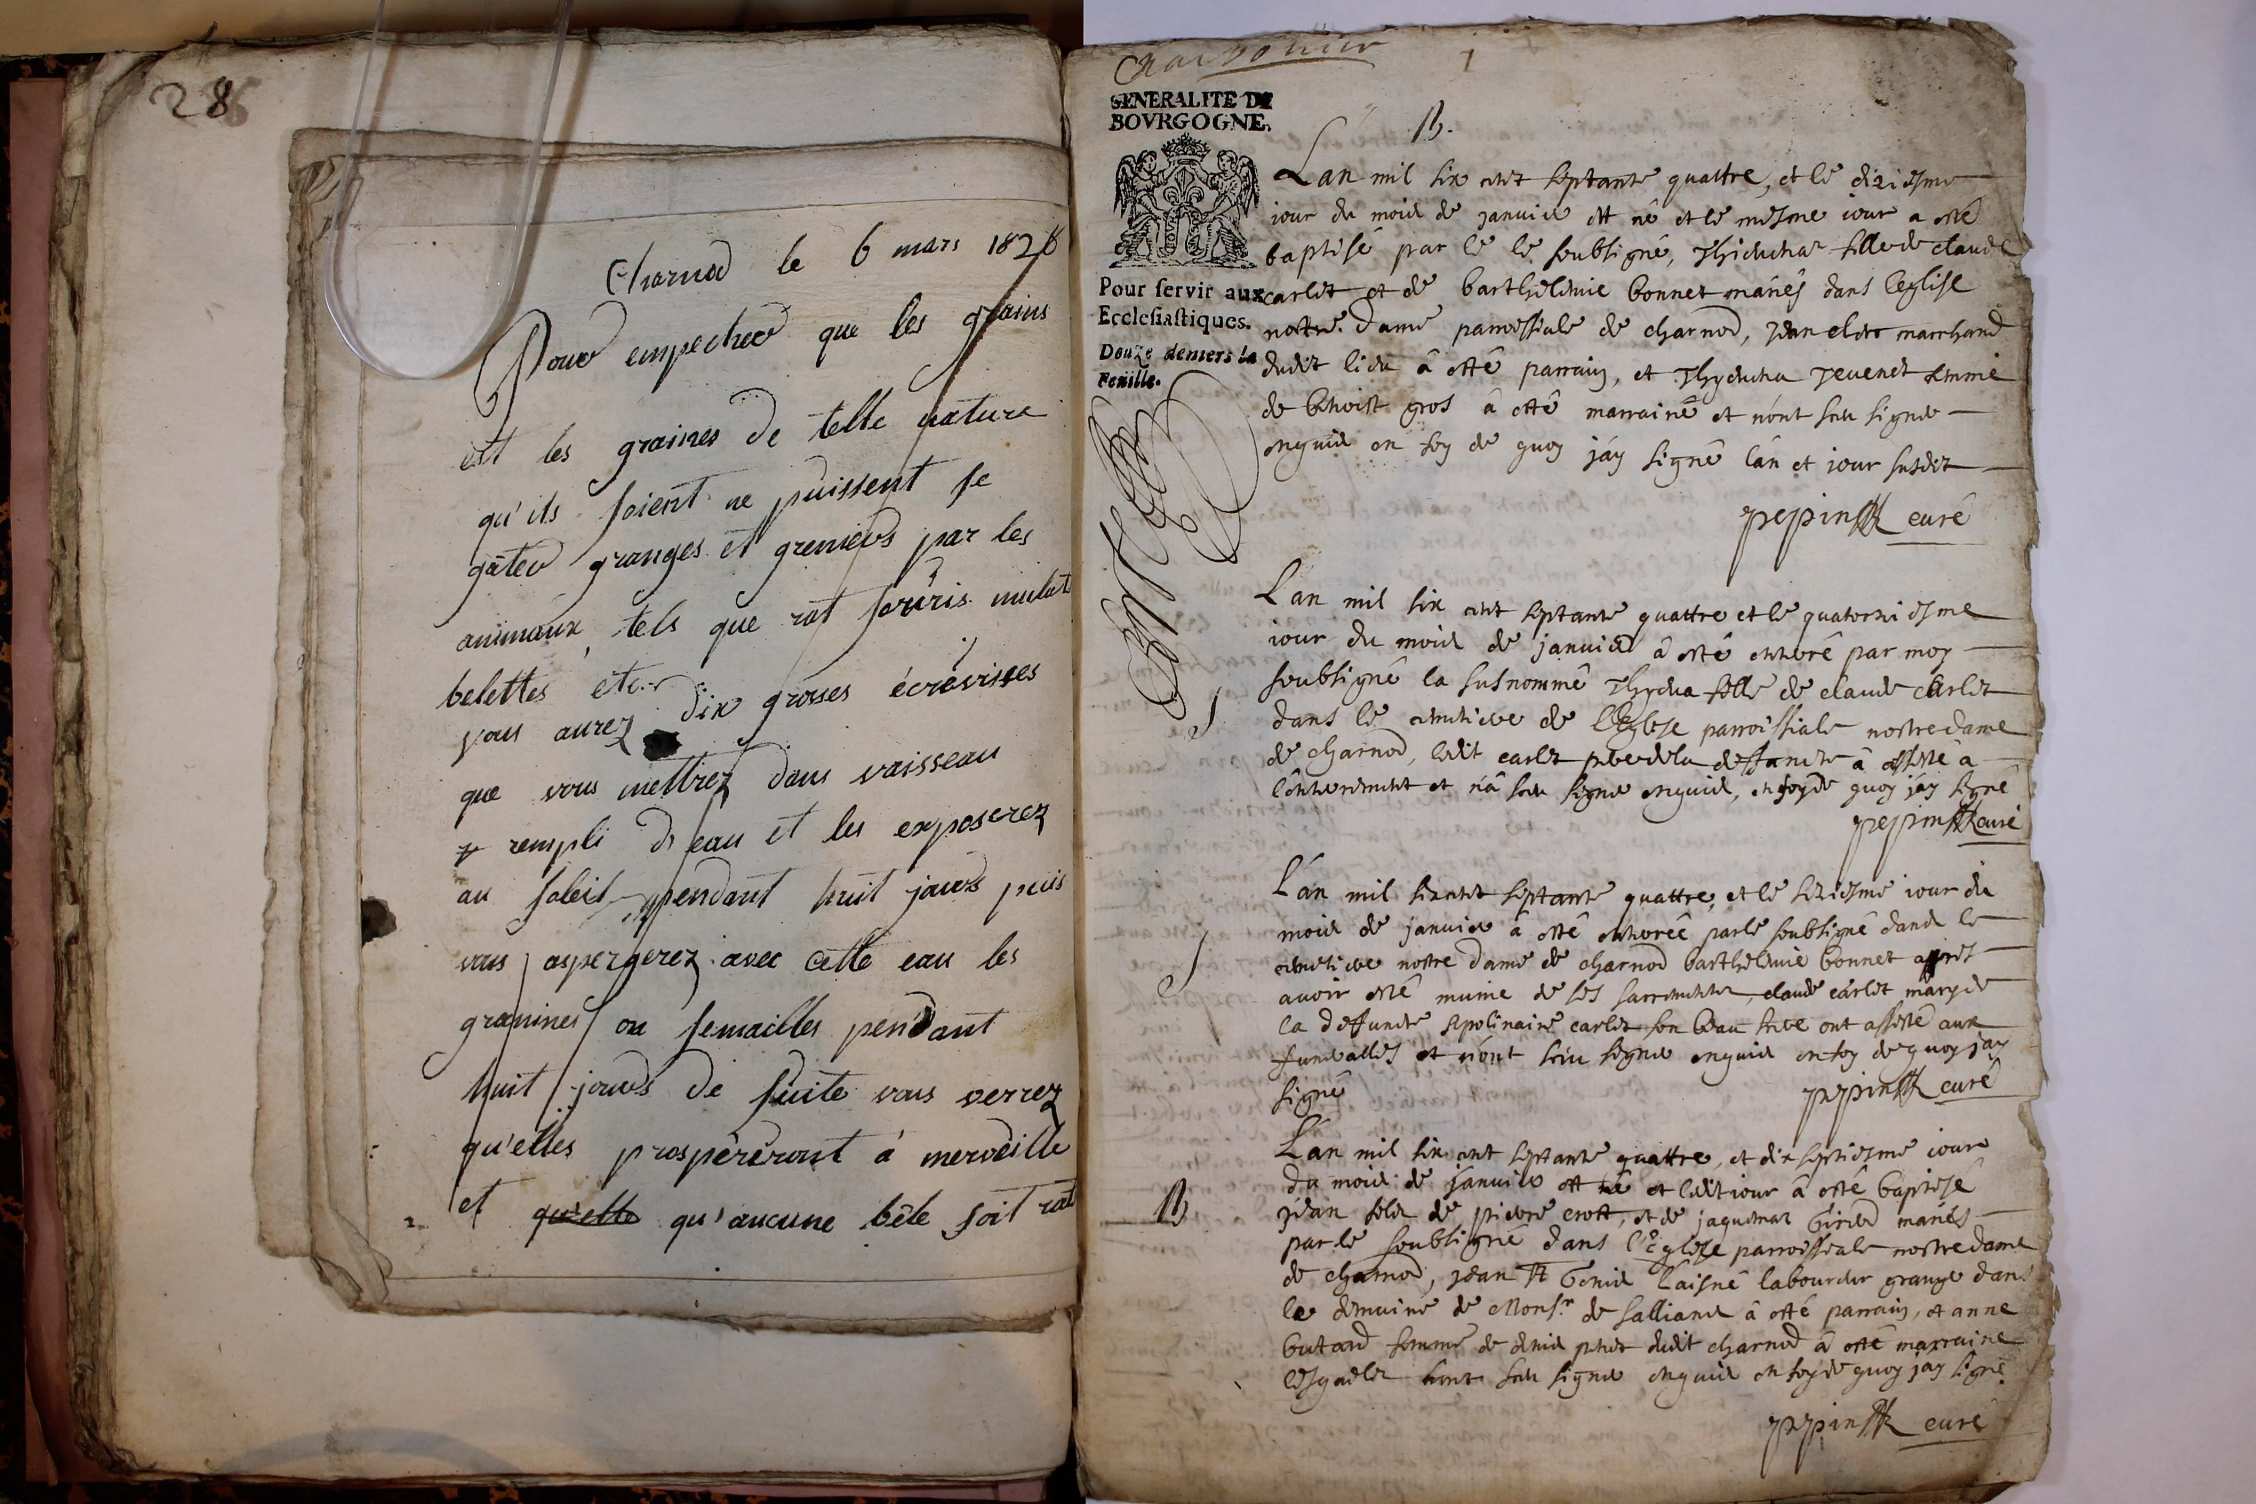 28
Charnod le 6 mars 1826
Pour empecher que les grains
et les graines de telle nature
qu'ils soient ne puissent se
gâter granges et greniers par les
animaux, tels que rat souris mulat
belettes etc.
vous aurez dix grosses écrévisses
que vous mettrez dans vaisseau
rempli d'eau et les exposerez
au soleil pendant huit jours puis
vous aspergerez avec cette eau les
granines ou semailles pendant
huit jours de suite vous verrez
qu'elles prospèreront à merveille
et qu'elle qu'aucune bête soit rat
1
GENERALITE DE
BOVRGOGNE.
Pour servir aux
Ecclesiastiques.
Douze deniers la
Feüille.
B.
Lan mil six cent septante quattre, et le diziesme
iour du mois de januier est né et le mesme iour a esté
baptisé par le le soubsigné, fille de claude
carlet et de barthelemie bonnet mariés dans leglise
nostre dame parroissiale de charnod, jean marchand
dudit lieu â esté parrain, et Thyevena femme
de benoist gros â esté marrainê et n'ont sceu signer
enquis en foy de quoy j'ay signé lan et iour susdit
pepin curé
Lan mil six cent septante quattre et le quatorziesme
iour du mois de januier â esté enterré par moy
soubsigné la susnommé fille de claude carlet
dans le cimetiere de l'Eglise parroissiale nostre dame
de charnod, ledit carlet pere de la deffuncte â assisté a
l'enterrement et n'â sceu signer enquis, en foy de quoy j'ay signé
pepin curé
L'an mil six cent septante quattre, et le seziesme iour du
mois de januier â esté enterrée par le soubsigné dans le
cimetiere nostre dame de charnod barthelemie bonnet apres
auoir esté munie de ses sacrements, claude carlet mary de
la defuncte Apolinaire carlet son beau frere ont assisté aux
funerailles et n'ont sceu signer enquis en foy de quoy j'ay
signé pepin curé
B
L'an mil six cent septante quattre, et dix septiesme iour
du mois de januier est né et ledit iour â esté baptisé
jean fils de pierre crost, et de mariés
par le soubsigné dans l'Eglise parroissiale nostre dame
de charnod, jean l'aisné laboureur granger dans
le domaine de Mons.r de salliand â esté parrain, et anne
butard femme de denis dudit charnod â esté marraine
lesquels n'ont sceu signer enquis en foy de quoy j'ay signé.
pepin curé